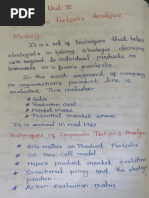 Unit III
Corporate Portfolio Analysis
Meaning
It is a set of techniques that helps
strategists in taking strategic decisions
with regard to individual products or
businesses in a firm's portfolio.
In the each segment of company
or organisation's product line is
studied. This includes:
# Sales
# Production cost
# Market share
# Potential market share
It is started in mid 1960
Techniques of Corporate Portfolio Analysis
# BCG Matrix or Product Portfolio
# GE Nine Cell Model
# Hofer's product market evolution
# Directional policy and the strategic
position
# Action evaluation matrix